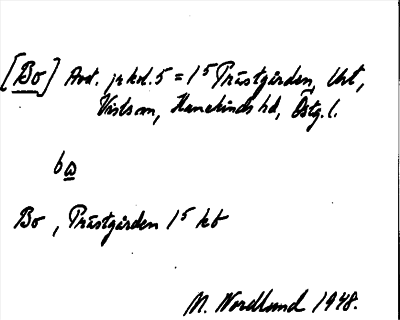 [Bo] Avd. jrkd. 5 = 1⁵ Prästgården, Urt,
Viststam, Hanekinds hd, Östg. l.
bω
Bo, Prästgården 1⁵ kt
M. Nordlund 1948.